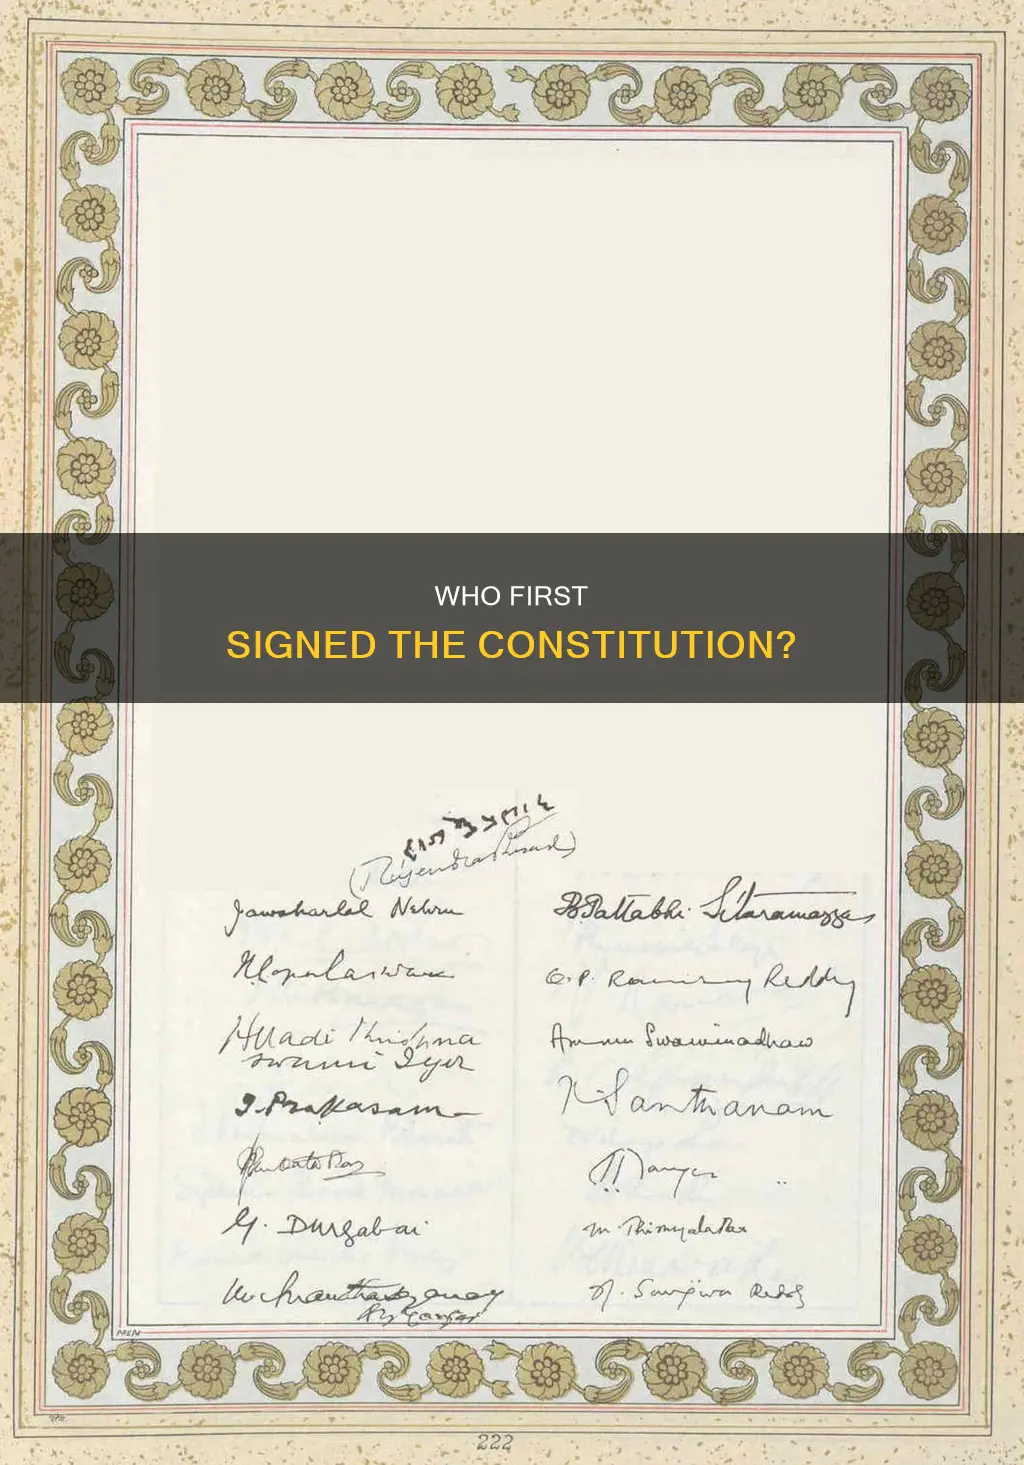 WHO FIRST
SIGNED THE CONSTITUTION?
(Rajendra Prasad)
Jawaharlal Nehru
B. Pattabhi Sitaramayya
O. P. Ramaswamy Reddy
Alladi Krishna
swami Iyer
Ammu Swaminadhan
T. Prakasam
K. Santhanam
G. Durgabai
M. Thirumala Rao
N. Sanjiva Reddy
222